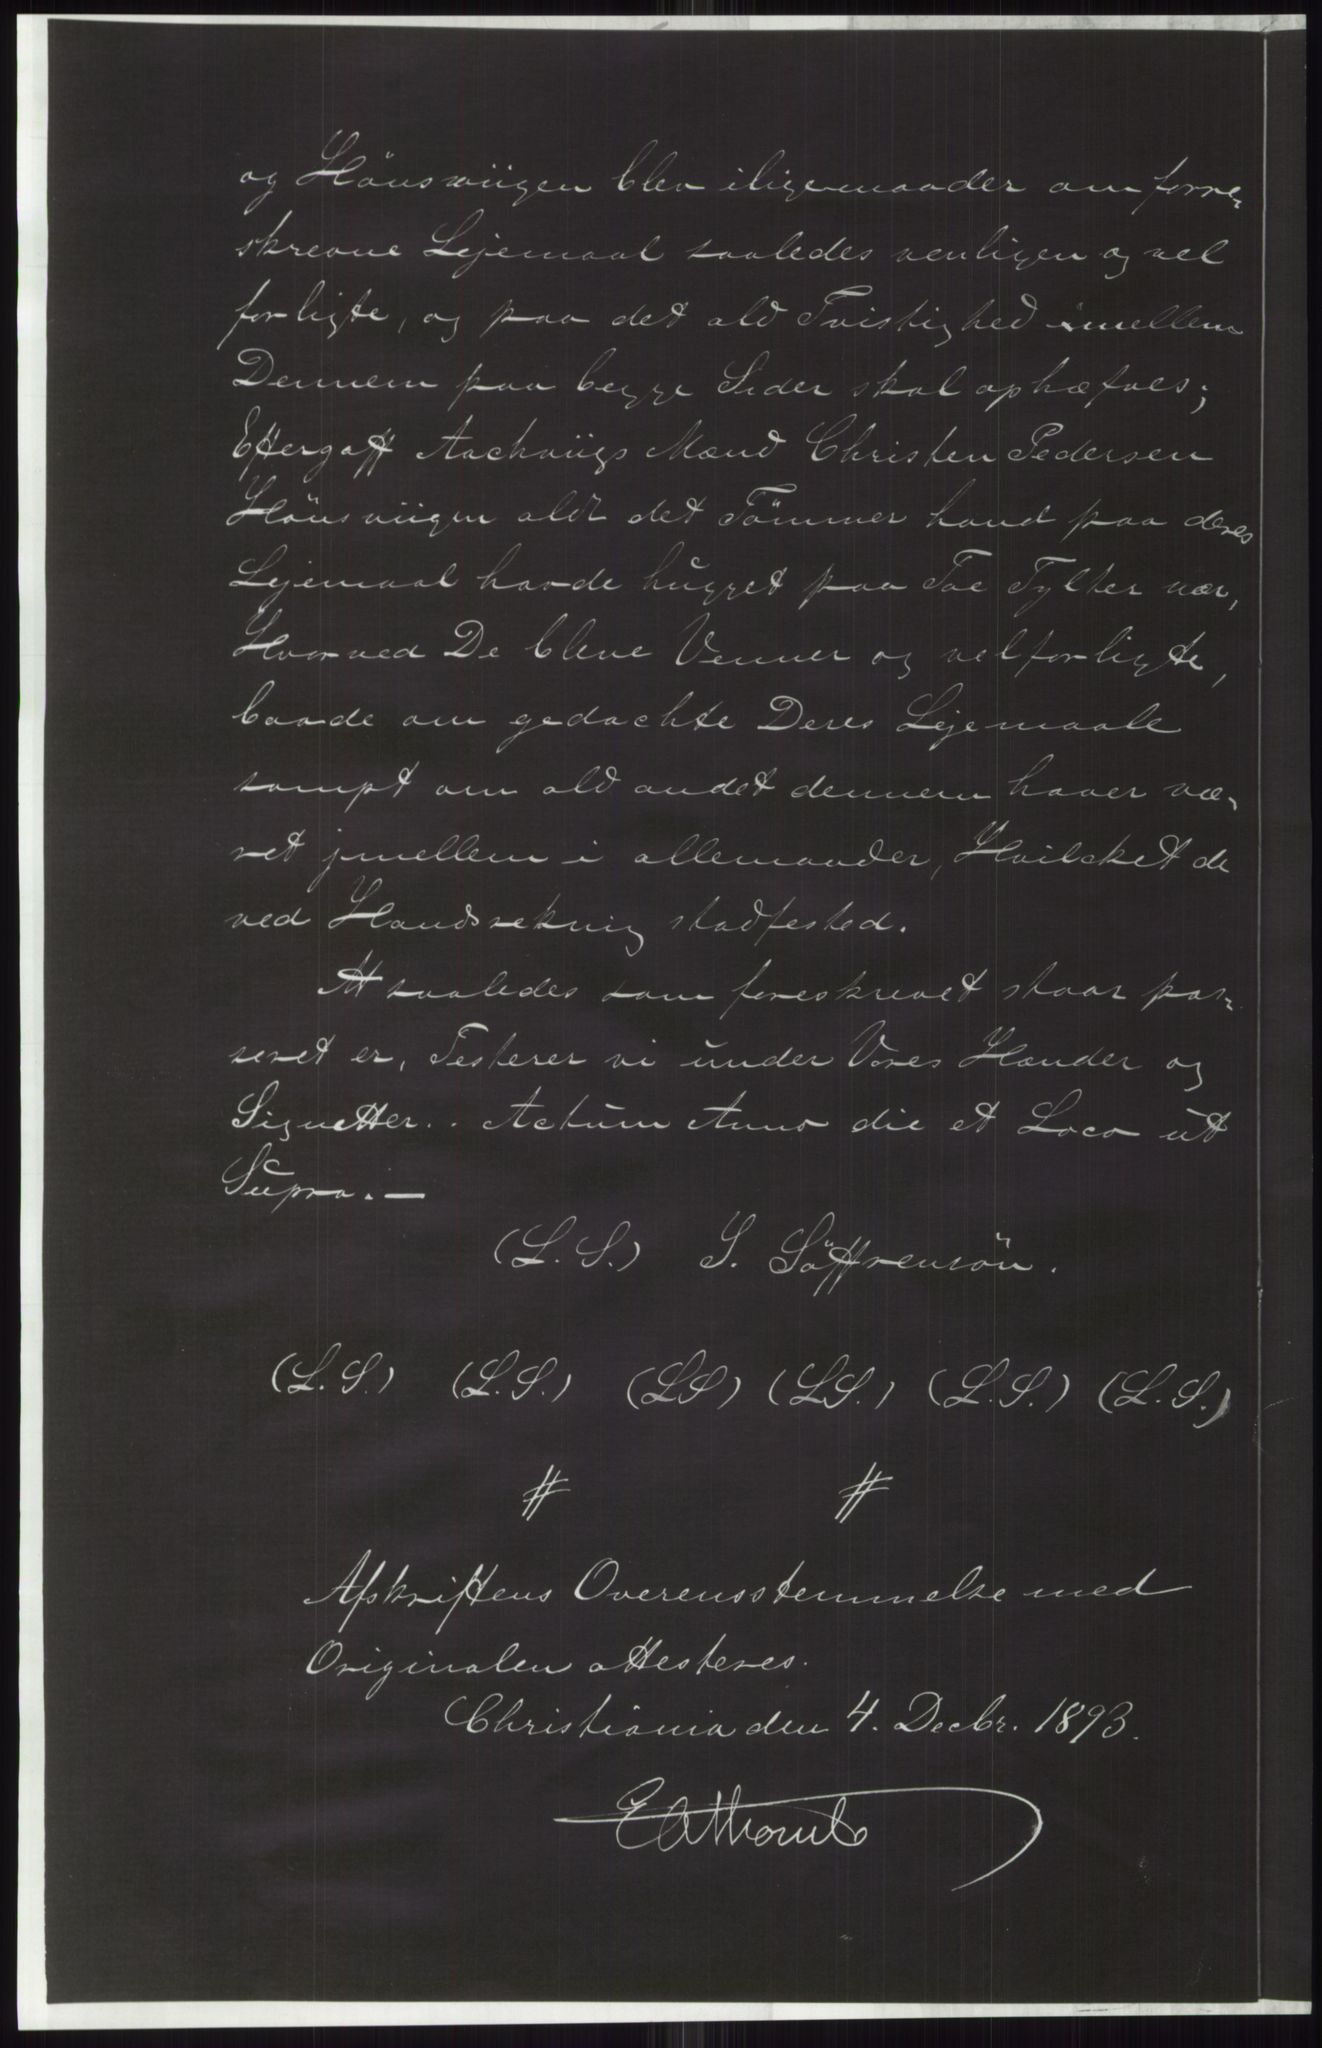 og Hönsviigen blev iligemaader om forre-
skrevne Lejemaal saaledes venligen og vel
forligte, og paa det ald Tvistighed imellem
Dennem paa begge Sider skal ophæfves;
Eftergaff Aachviigs Mænd Christen Pedersen
Hönsviigen aldt det Tömmer hand paa deres
Lejemaal havde hŭgget paa Toe Tylter nær,
Hvorved De bleve Venner og velforligte,
baade om gedachte Deres Lejemaale
sampt om ald andet dennem haver væ-
ret jmellem i allemaader, Hvilcket de
ved Handsrekning stadfested.
At saaledes som foreskrevet staar pas-
seret er, Testerer vi ŭnder Vores Hænder og
Signetter.. Actŭm Anno die et Loco ŭt
Sŭpra.—
(L.S.) S. Söffrensön.
(L.S.) (L.S.) (LS) (LS.) (L.S.) (L.S.)
# #
Afskriftens Overensstemmelse med
Originalen attesteres.
Christiania den 4. Decbr. 1893.